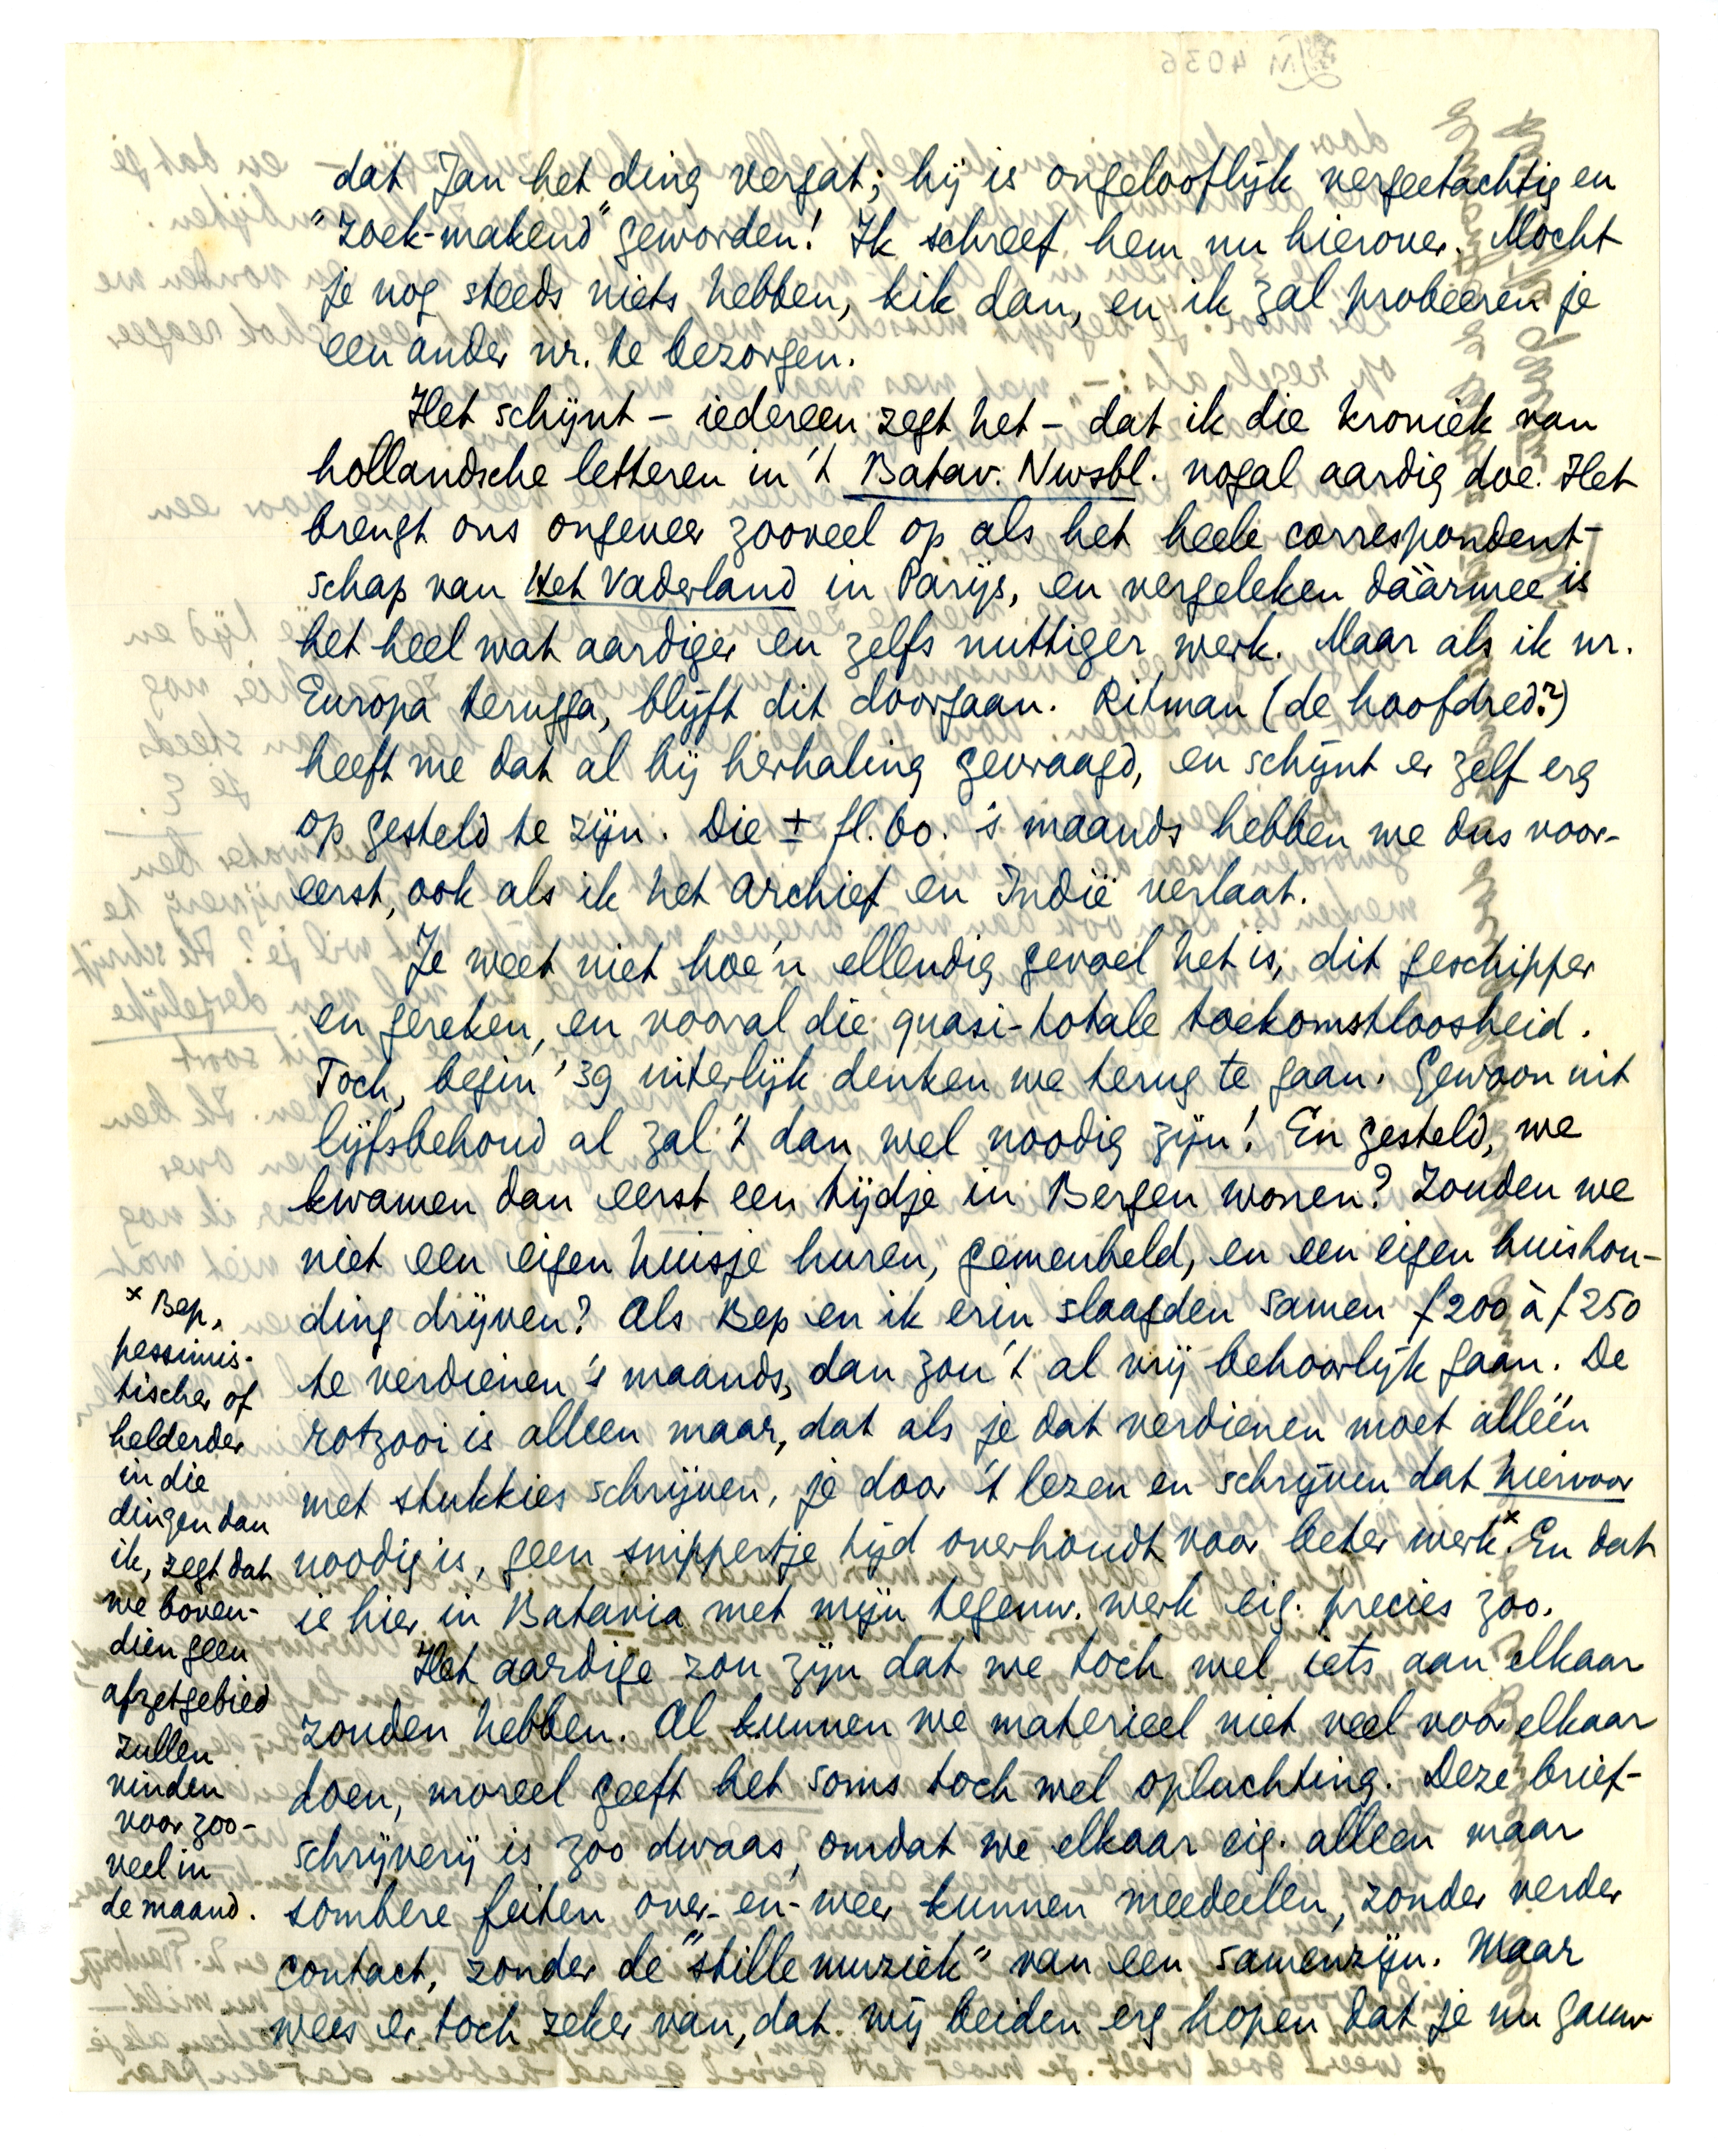 dat Jan het ding vergat; hij is ongelooflijk vergeetachtig en
"zoek-makend" geworden! Ik schreef hem nu hierover. Mocht
je nog steeds niets hebben, kik dan, en ik zal probeeren je
een ander nr. te bezorgen.
Het schijnt – iedereen zegt het – dat ik die kroniek van
hollandsche letteren in 't Batav. Nwsbl. nogal aardig doe. Het
brengt ons ongeveer zooveel op als het heele correspondent-
schap van Het Vaderland in Parijs, en vergeleken dáármee is
het heel wat aardiger en zelfs nuttiger werk. Maar als ik nr.
Europa terugga, blijft dit doorgaan. Ritman (de hoofdred.)
heeft me dat al bij herhaling gevraagd, en schijnt er zelf erg
op gesteld te zijn. Die ± fl. 60. 's maands hebben we dus voor-
eerst, ook als ik het archief en Indië verlaat.
Je weet niet hoe'n ellendig gevoel het is, dit geschipper
en gereken, en vooral die quasi-totale toekomstloosheid.
Toch, begin '39 uiterlijk denken we terug te gaan. Gewoon uit
lijfsbehoud al zal 't dan wel noodig zijn! En gesteld, we
kwamen dan eerst een tijdje in Bergen wonen? Zouden we
niet een eigen huisje huren, gemeubeld, en een eigen huishou-
ding drijven? Als Bep en ik erin slaagden samen f 200 à f 250
te verdienen 's maands, dan zou 't al vrij behoorlijk gaan. De
rotzooi is alleen maar, dat als je dat verdienen moet alléén
met stukkies schrijven, je door 't lezen en schrijven dat hiervoor
noodig is, geen snippertje tijd overhoudt voor beter werk.x En dat
is hier in Batavia met mijn tegenw. werk eig. precies zoo.
Het aardige zou zijn dat we toch wel iets aan elkaar
zouden hebben. Al kunnen we materieel niet veel voor elkaar
doen, moreel geeft het soms toch wel opluchting. Deze brief-
schrijverij is zoo dwaas, omdat we elkaar eig. alleen maar
sombere feiten over- en- weer kunnen meedeelen, zonder verder
contact, zonder de "stille muziek" van een samenzijn. Maar
wees er toch zeker van, dat wij beiden erg hopen dat je nu gauw
x Bep,
pessimis-
tischer of
helderder
in die
dingen dan
ik, zegt dat
we boven-
dien geen
afzetgebied
zullen
vinden
voor zoo-
veel in
de maand.